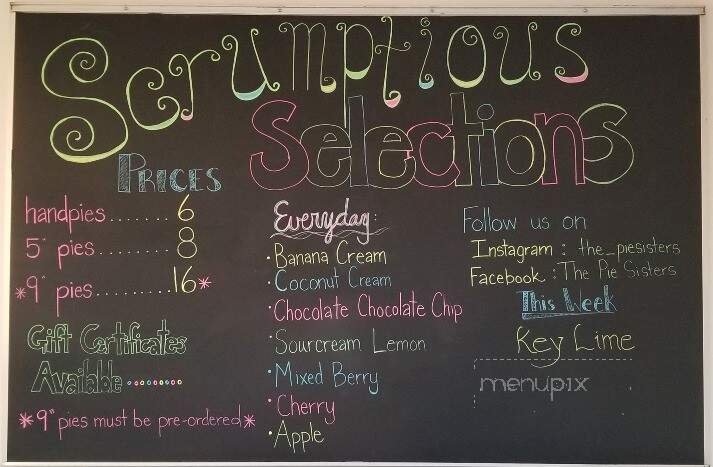 Scrumptious
Selections
PRICES
handpies........6
5" pies........8
*9" pies.........16*
Gift Certificates
Available........
*9" pies must be pre-ordered*
Everyday:
·Banana Cream
·Coconut Cream
·Chocolate Chocolate Chip
·Sourcream Lemon
·Mixed Berry
·Cherry
·Apple
Follow us on
Instagram : the_piesisters
Facebook : The Pie Sisters
This Week
Key Lime
menupix